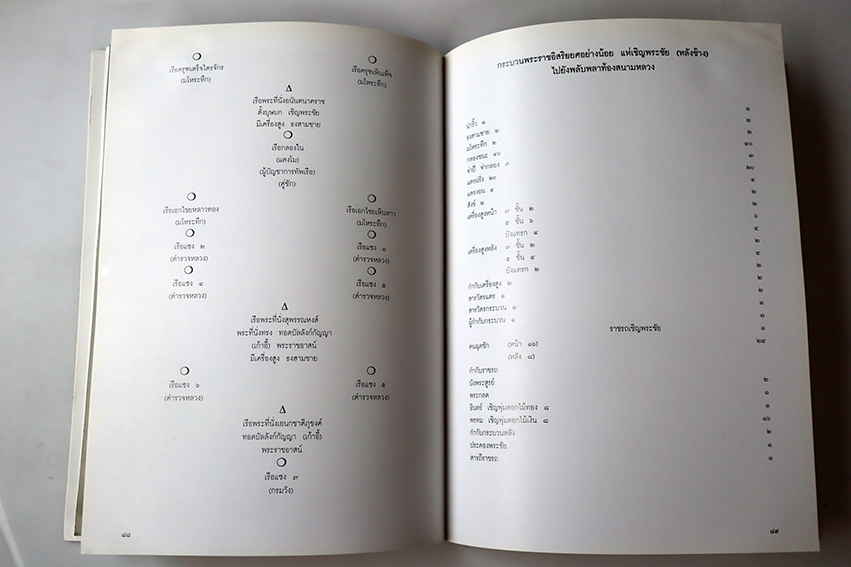 เรือครุฑเตร็จไตรจักร
(มโหระทึก)
เรือครุฑเหินเห็จ
(มโหระทึก)
เรือพระที่นั่งอนันตนาคราช
ตั้งบุษบก เชิญพระชัย
มีเครื่องสูง ธงสามชาย
เรือกลองใน
(แตงโม)
(ผู้บัญชาการทัพเรือ)
(คู่ชัก)
เรือเอกไชยหลาวทอง
(มโหระทึก)
เรือเอกไชยเหินหาว
(มโหระทึก)
เรือแซง ๒
(ตำรวจหลวง)
เรือแซง ๑
(ตำรวจหลวง)
เรือแซง ๔
(ตำรวจหลวง)
เรือแซง ๕
(ตำรวจหลวง)
เรือพระที่นั่งสุพรรณหงส์
พระที่นั่งทรง ทอดบัลลังก์กัญญา
(เก้าอี้) พระราชอาสน์
มีเครื่องสูง ธงสามชาย
เรือแซง ๖
(ตำรวจหลวง)
เรือแซง ๕
(ตำรวจหลวง)
เรือพระที่นั่งเอนกชาติภุชงค์
ทอดบัลลังก์กัญญา (เก้าอี้)
พระราชอาสน์
เรือแซง ๗
(กรมวัง)
๘๘
กระบวนพระราชอิสริยยศอย่างน้อย แห่เชิญพระชัย (หลังช้าง)
ไปยังพลับพลาท้องสนามหลวง
นำริ้ว ๑
ธงสามชาย ๒
มโหระทึก ๒
กลองชนะ ๔๐
จ่าปี่ จ่ากลอง
แตรฝรั่ง ๒๐
แตรงอน ๔
สังข์ ๒
เครื่องสูงหน้า ๗ ชั้น ๒
๕ ชั้น ๖
บังแทรก ๔
เครื่องสูงหลัง ๗ ชั้น ๒
๕ ชั้น ๔
บังแทรก ๒
กำกับเครื่องสูง ๒
สารวัตรแตร ๑
สารวัตรกระบวน ๑
ผู้กำกับกระบวน ๑
ราชรถเชิญพระชัย
คนฉุดชัก (หน้า ๑๖)
(หลัง ๘)
๒๔
กำกับราชรถ
บังพระสูรย์
พระกลด
อินทร์ เชิญพุ่มดอกไม้ทอง ๘
พรหม เชิญพุ่มดอกไม้เงิน ๘
๑๖
กำกับกระบวนหลัง
ประคองพระชัย
สารถีราชรถ
๘๙